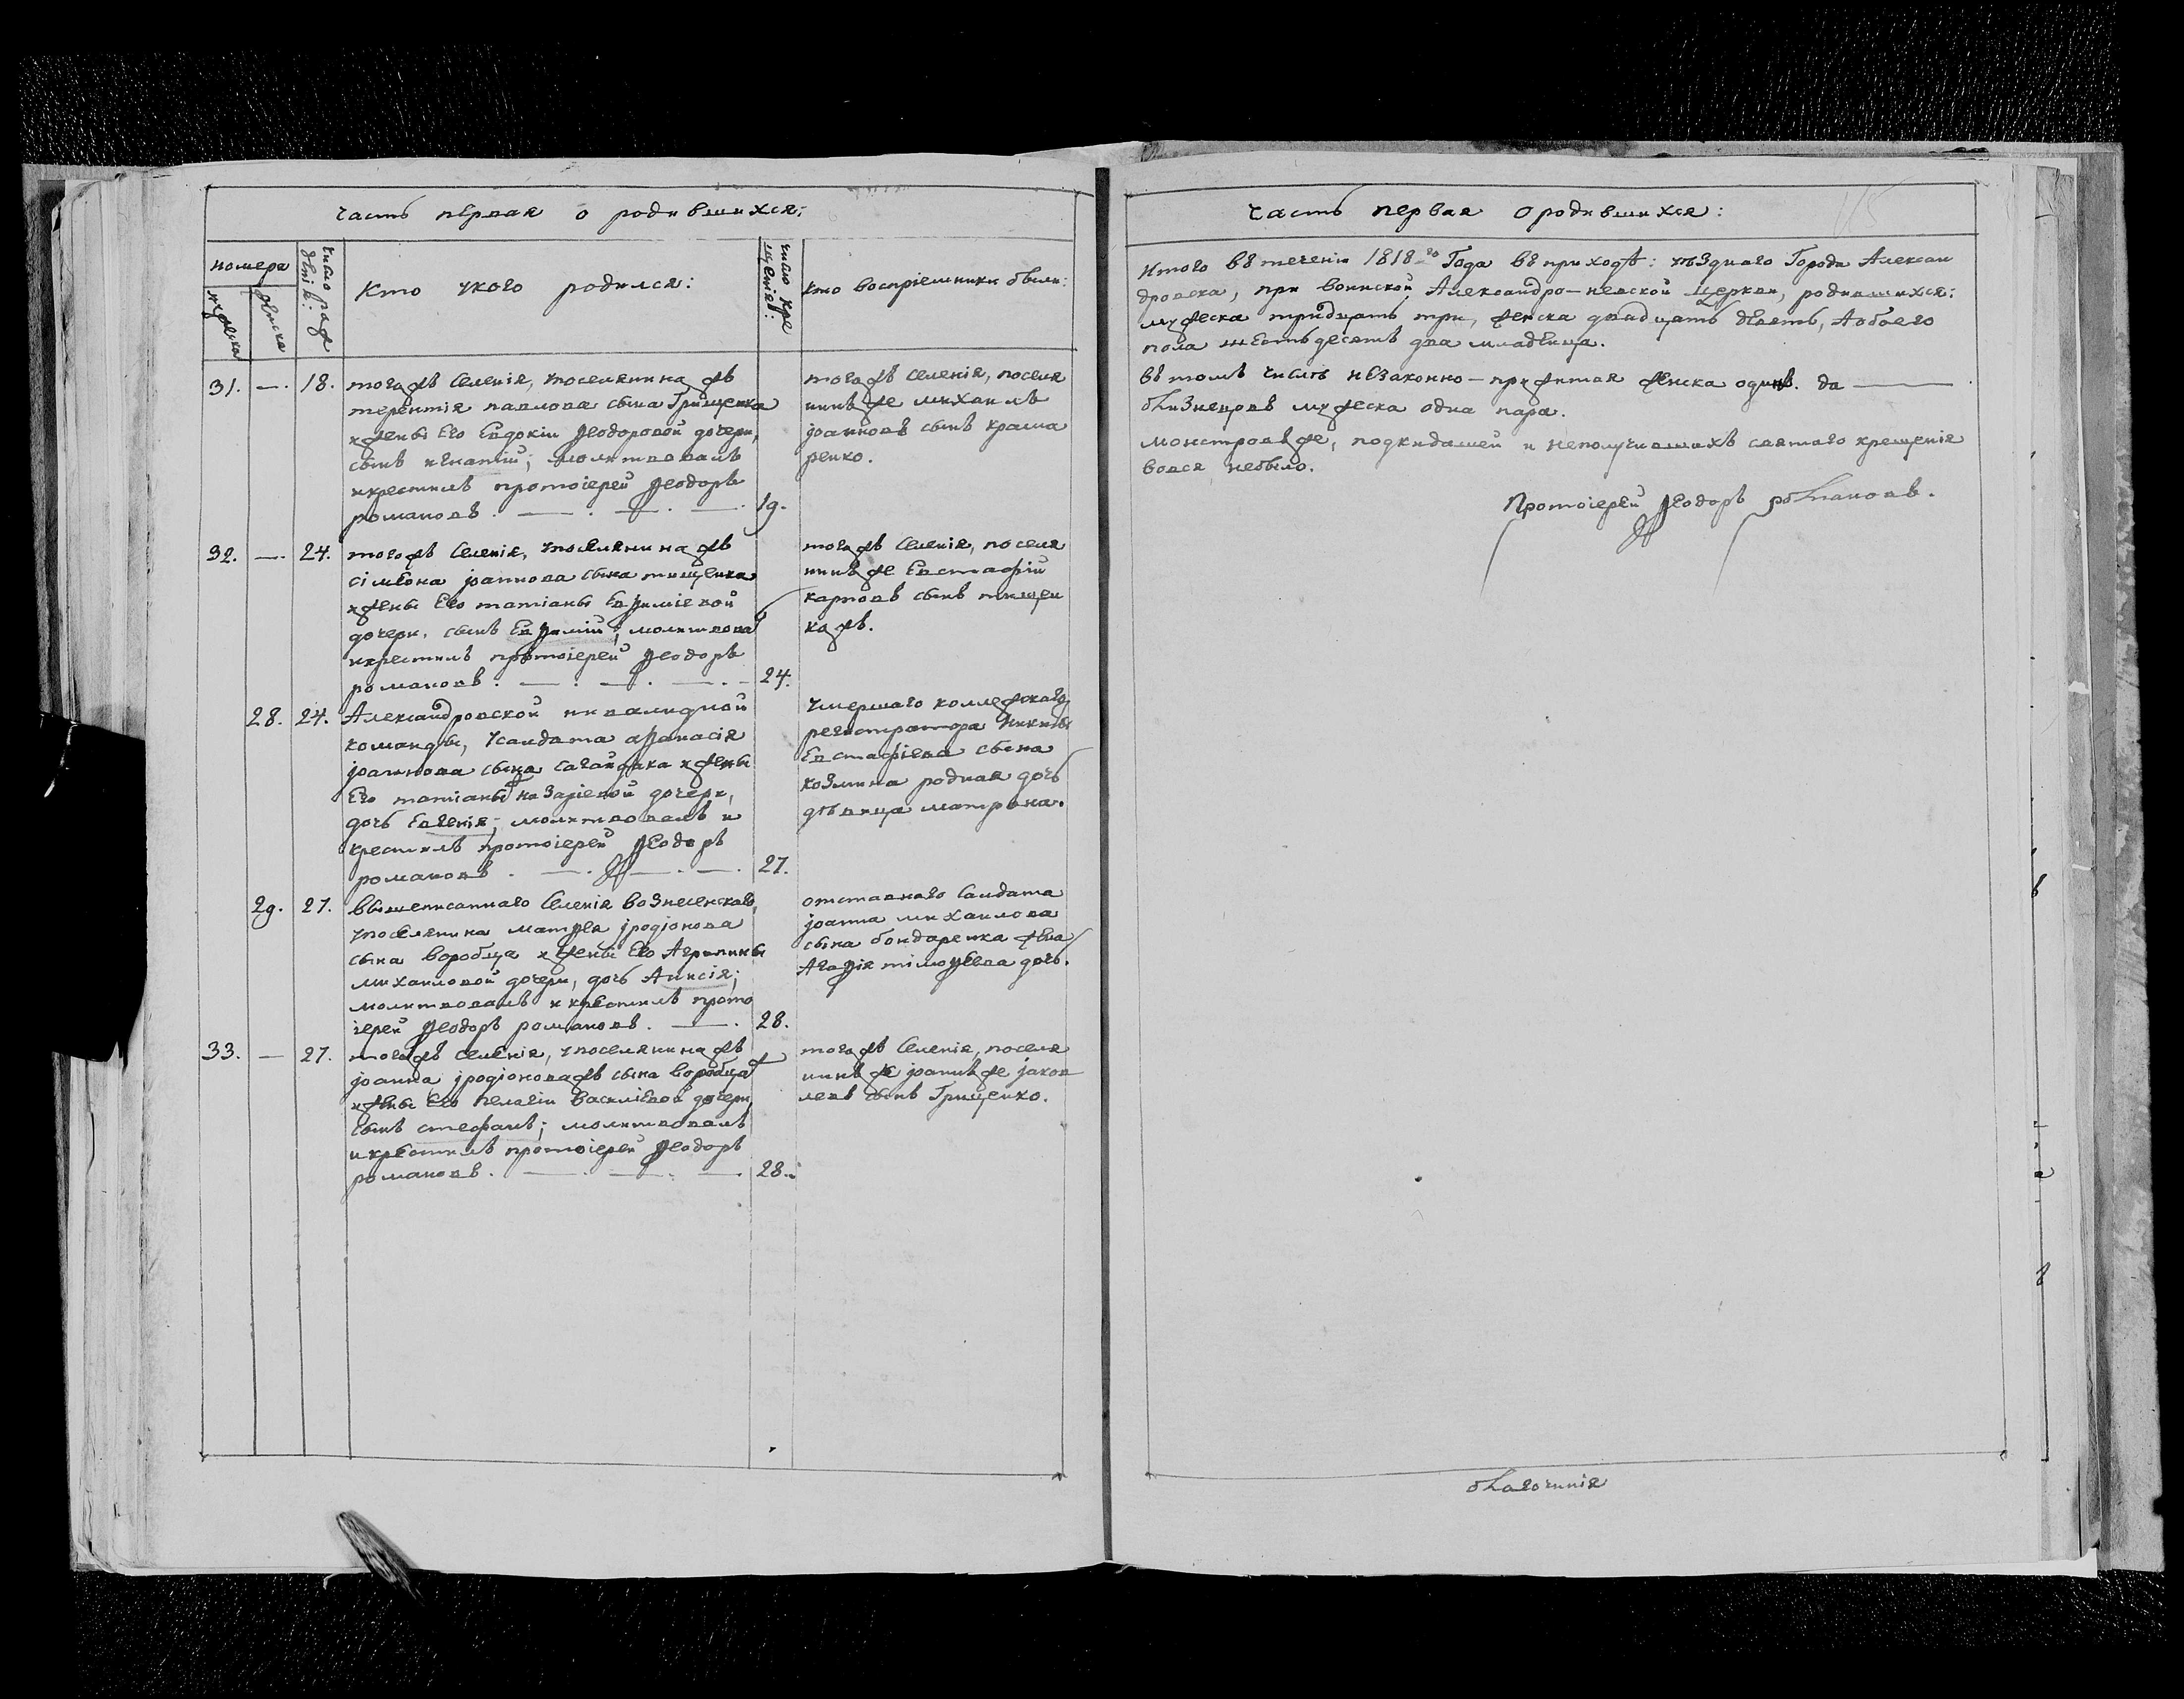 часть первая о родившихся:
номера
мужеска
женска
число рож
деніе:
Кто укого родился:
число кре
щеніе:
Кто воспріемники были:
31. —. 18. тогожъ Селенія, упоселянинажъ
терентія павлова сына Грищенка
ижены Его Евдокіи Ѳеодоровой дочери,
сынъ игнатій; молитвовалъ
икрестилъ протоіерей Ѳеодоръ
романовъ. — . — . — . 19.
тогожъ Селенія, поселя
нинъ же михаилъ
јоанновъ сынъ крама
ренко.
32. —. 24. тогожъ Селенія, упоселянинажъ
сімеона јоаннова сына тищенка
ижены Его татіаны Евѳиміевой
дочери, сынъ Евѳимій; молитвова
икрестилъ протоіерей Ѳеодоръ
романовъ. — . — . — . — 24.
тогожъ Селенія, поселя
нинъ же Евстафій
карповъ сынъ тищен
кожъ.
28. 24. Александровской инвалидной
команды, усалдата аѳанасія
јоаннова сына сагайдака ижены
Его татіаны Назаріевой дочери,
дочь Евгенія; молитвовалъ и
крестилъ протоіерей Ѳеодоръ
романовъ . — . — . — . 27.
умершаго коллежскаго
регистратора Никиты
Евстафіева сына
козмина родная дочь
дѣвица матрона.
29. 27. вышеписаннаго Селенія вознесенскаго,
упоселянина матѳея јродіонова
сына воробца ижены Его Агрипины
михаиловой дочери, дочь Анисія;
молитвовалъ икрестилъ прото
іерей Ѳеодоръ романовъ. — . 28.
отставнаго Салдата
јоанна михаилова
сына бондаренка жена
Агаѳія тімоѳеева дочь.
33. — 27. тогожъ селенія, упоселянинажъ
јоанна јродіоноважъ сына воробца
ижены Его Пелагіи Василіевой дочери,
сынъ стефанъ; молитвовалъ
икрестилъ протоіерей Ѳеодоръ
романовъ. — . — . — . 28.
тогожъ Селенія, поселя
нинъ же јоаннъ же јаков
левъ сынъ Грищенко.
часть первая о родившихся:
Итого въ теченіи 1818-го Года въ приходѣ: уѣзднаго Города Алексан
дровска, при воинской Александро-невской Церкви, родившихся:
мужеска тридцать три, женска двадцать девять, Аобоего
пола шестьдесятъ два младенца.
въ томъ числѣ незаконно-прижитая женска одинъ. да —
близнецовъ мужеска одна пара.
монстровъже, подкидашей и неполучившихъ святаго крещенія
вовся небыло.
Протоіерей Ѳеодоръ романовъ.
благочинія